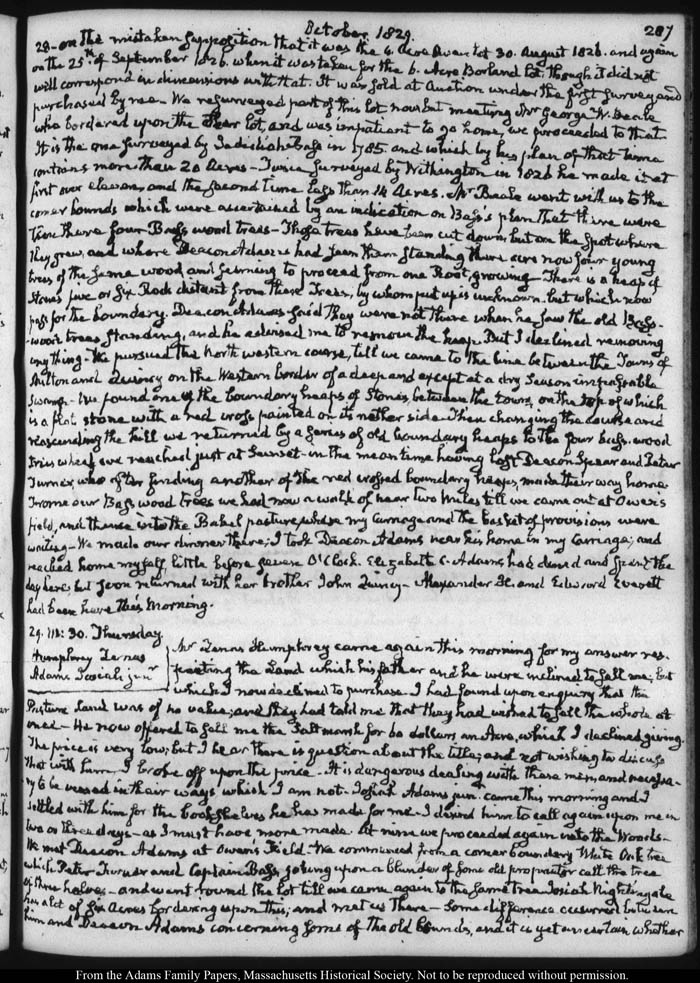 October 1829.
287
28- on the mistaken supposition that it was the 6. Acre Swan lot 30. August 1826. and again
on the 25th of September 1826. when it was taken for the 6. Acre Borland lot. though it did not
will correspond in dimensions with that. It was sold at Auction under the first survey and
purchased by me. We resurveyed part of this lot now but meeting Mr George W. Beale
who bordered upon the lot, and was impatient to go home, we proceeded to that
It is the one surveyed by Jedediah Bass in 1785. and which by his plan of that time
contains more than 20 Acres- Twice surveyed by Withington in 1826 he made it at
first over eleven, and the second time less than 14 Acres. Mr Beale went with us to the
corner bounds which were ascertained by an indication on Bass's plan that there were
then there four Bass wood trees- Those trees have been cut down but on the spot where
they grew, and where Deacon Adams had seen them standing there are now four young
trees of the same wood and seeming to proceed from one Root, growing- There is a heap of
Stones five or six Rods distant from these Trees, by whom put up is unknown. but which now
pass for the boundary. Deacon Adams said they were not there when he saw the old Bass-
wood trees standing, and he advised me to remove the heap. But I declined removing
any thing- We pursued the North western course, till we came to the line between the Towns of
Milton and Quincy on the Western border of a deep and except at a dry Season impassable
Swamp. We found one of the boundary heaps of Stones, between the towns, on the top of which
is a flat stone with a red cross painted on its nether side. Then changing the course and
reascending the hill we returned by a series of old boundary heaps to the four bass-wood
trees where we reached just at Sunset- in the mean time having lost Deacon Spear and Peter
Turner, who after finding another of the red crossed boundary heaps, made their way home.
From our Bass wood trees we had now a walk of near two miles till we came out at Owen's
field, and thence into the Babel pasture, where my Carriage and the basket of provisions were
waiting- We made our dinner there; I took Deacon Adams near his home in my Carriage; and
reached home myself little before seven O'Clock. Elizabeth C. Adams, had dined and spent the
day here; but soon returned with her brother John Quincy- Alexander H. and Edward Everett
had been here this Morning.
29. III: 30. Thursday.
Humphrey Lenas
Adams Josiah junr
Mr Lenas Humphrey came again this morning for my answer res-
pecting the Land which his father and he were inclined to sell me; but
which I now declined to purchase. I had found upon enquiry that the
Pasture land was of no value; and they had told me that they had wished to sell the whole at
once- He now offered to sell me the Salt marsh for 60 dollars an Acre, which I declined giving.
The price is very low; but I hear there is question about the title; and not wishing to discuss
that with him, I broke off upon the price- It is dangerous dealing with these men, and necessa-
ry to be versed in their ways which I am not- Josiah Adams junr. came this morning and I
settled with him for the book shelves he has made for me. I desired him to call again upon me in
two or three days- as I must have more made. At nine we proceeded again into the Woods-
We met Deacon Adams at Owen's Field. We commenced from a corner boundary White Oak tree
which Peter Turner and Captain Bass, going upon a blunder of some old proprietor call the tree
of three halves- and went round the lot till we came again to the same tree. Josiah Nightingale
has a lot of six Acres bordering upon this; and met us there- Some difference occurred between
him and Deacon Adams concerning some of the old bounds, and it is yet uncertain whether
From the Adams Family Papers, Massachusetts Historical Society. Not to be reproduced without permission.